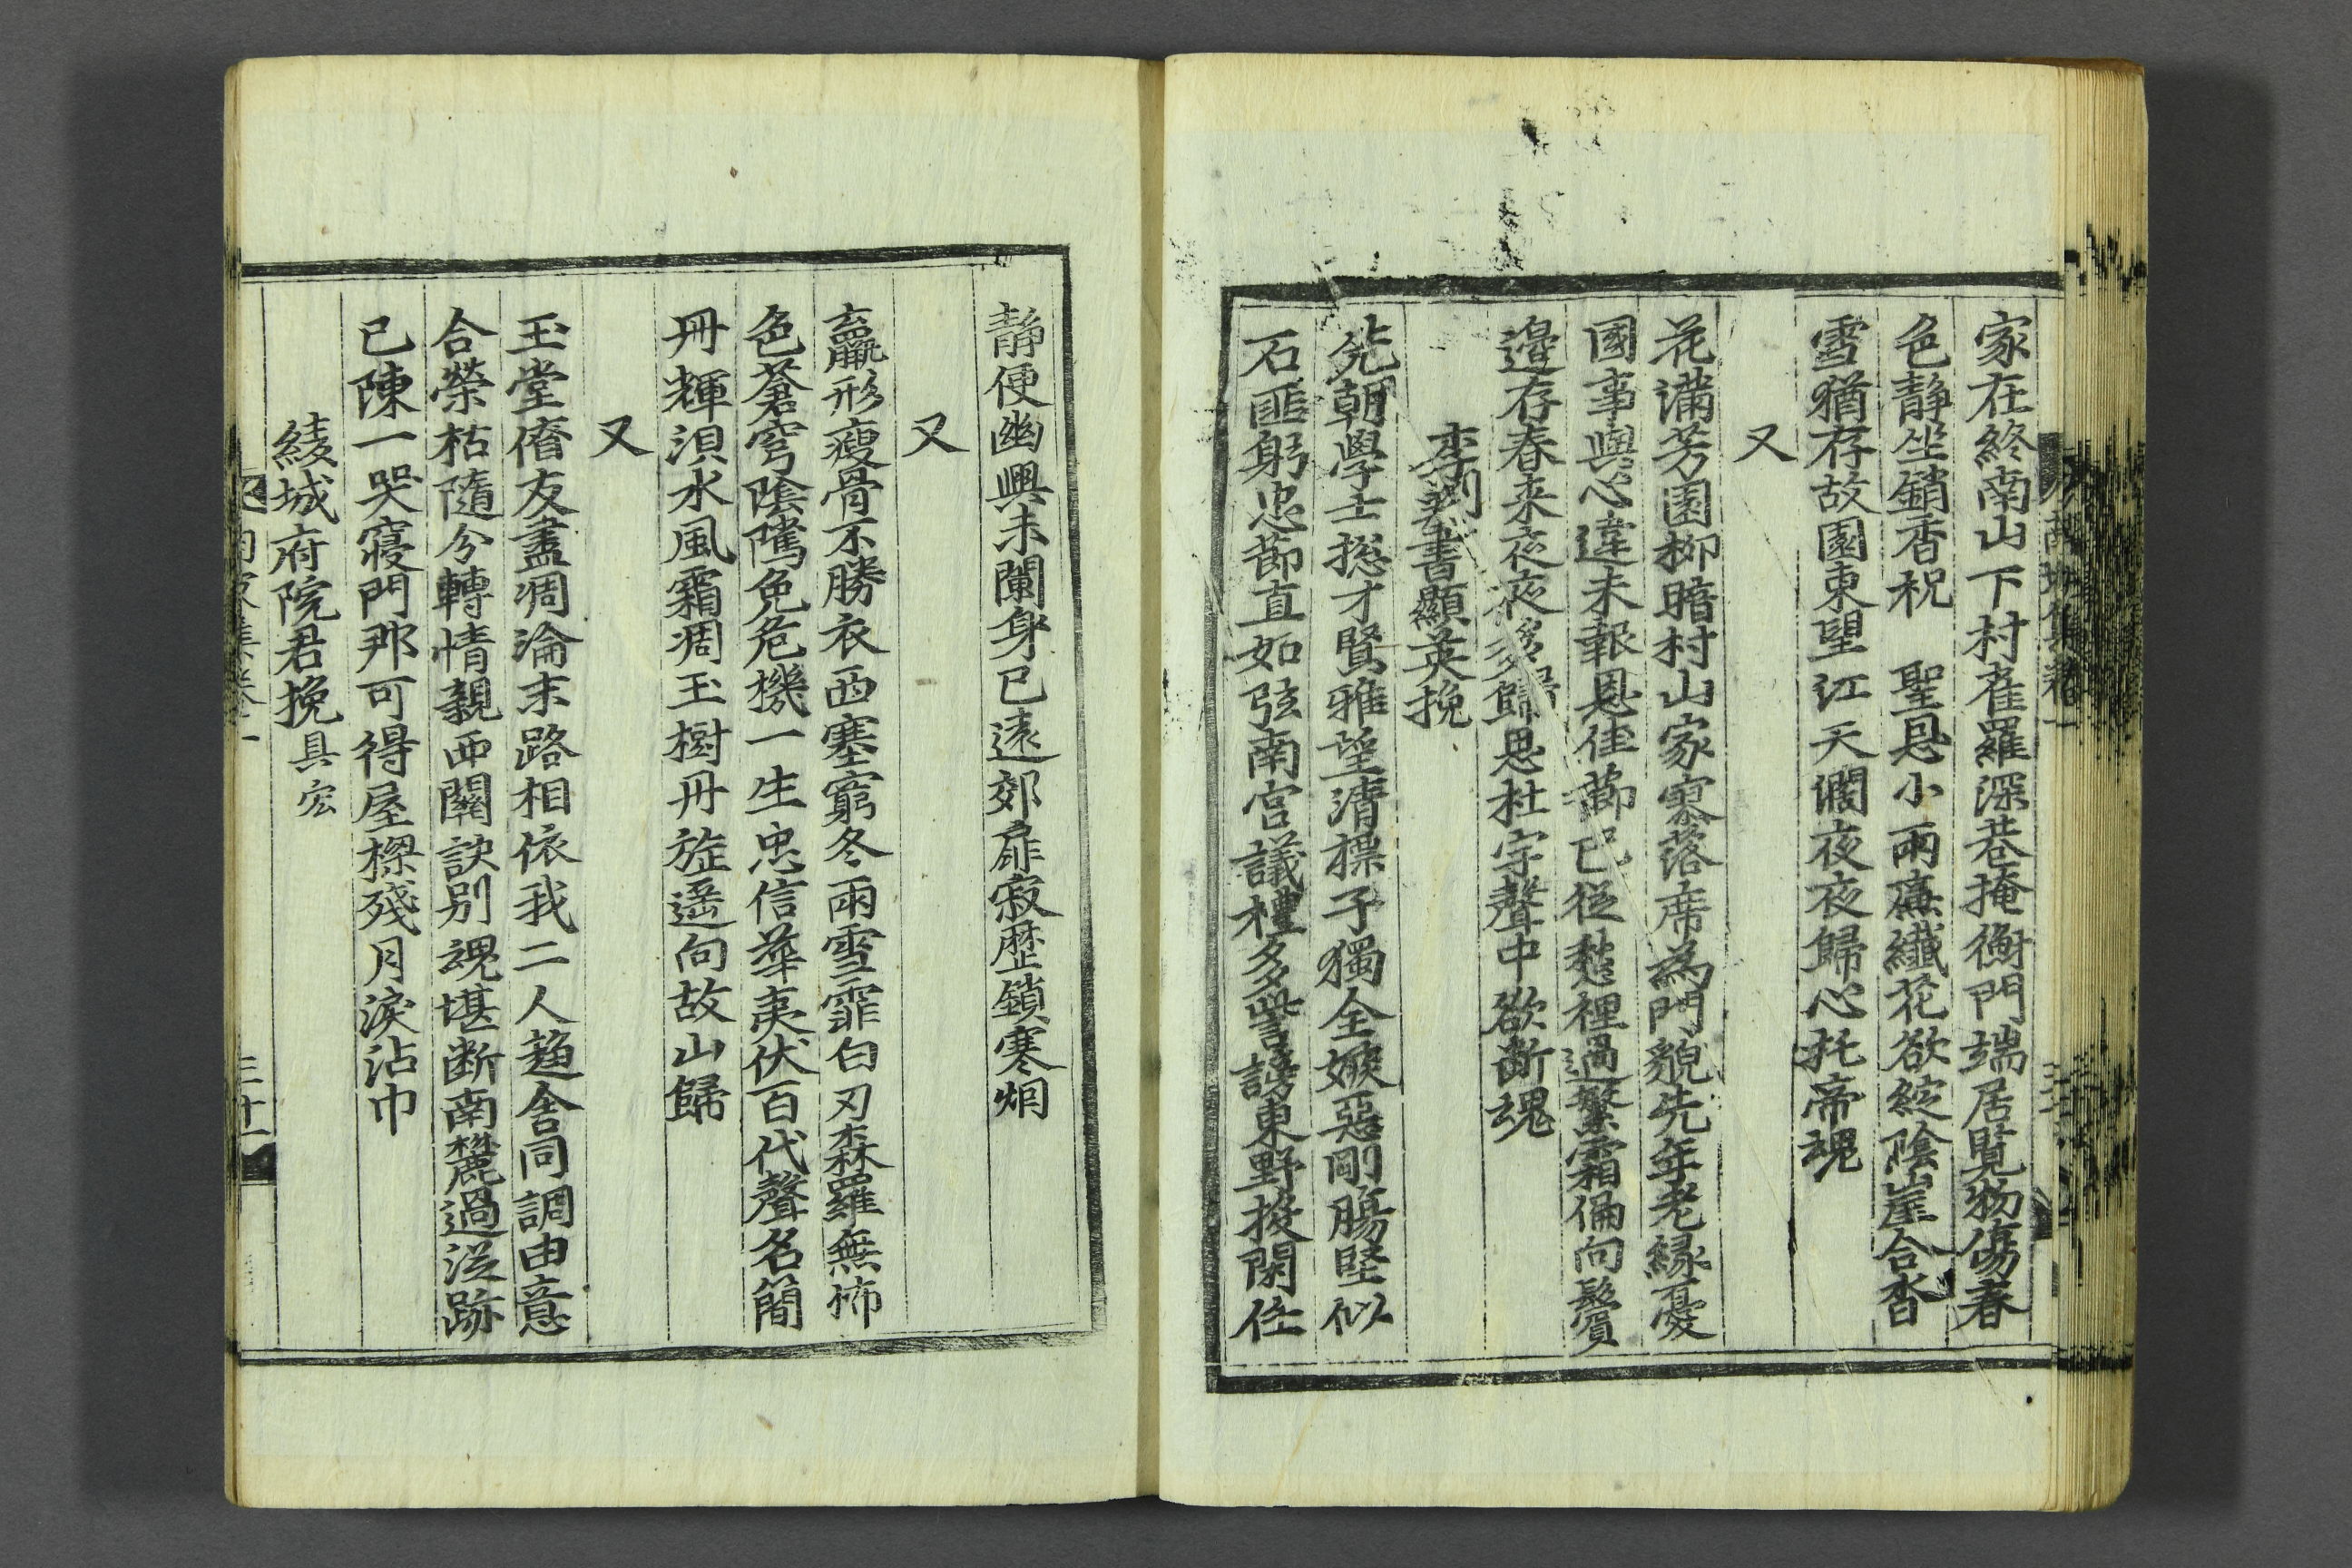 家在終南山下村雀羅深巷掩衡門端居覽物傷春
色靜坐銷香祝　聖恩小雨廉纖花欲綻陰崖合杳
雪猶存故園東望江天闊夜夜歸心托帝魂
又
花滿芳園柳暗村山家寥落席為門貌先年老緣憂
國事與心違未報恩佳節已從愁裡過繁霜偏向鬢
邊存春来夜夜多歸思杜宇聲中欲斷魂
李判書顯英挽
先朝學士捴才賢雅望清標子獨全嫉惡剛腸堅似
石匪躬忠節直如弦南宮議禮多訾謗東野投閑任
靜便幽興未闌身已遠郊扉寂歷鎖寒烟
又
羸形瘦骨不勝衣西塞窮冬雨雪霏白刃森羅無怖
色蒼穹陰隲免危機一生忠信華夷伏百代聲名簡
冊輝浿水風霜凋玉樹丹旌遥向故山歸
又
玉堂僚友盡凋淪末路相依我二人趨舍同調由意
合榮枯隨分轉情親西關訣别魂堪斷南麓過從跡
已陳一哭寢門那可得屋樑殘月淚沾巾
綾城府院君挽具宏
三十一